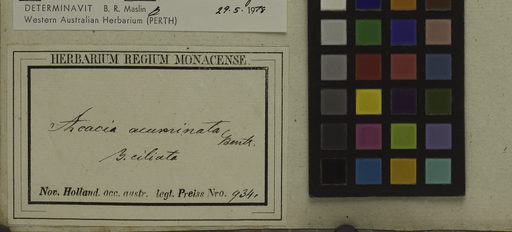 DETERMINAVIT B. R. Maslin 29.5.1978
Western Australian Herbarium (PERTH)
HERBARIUM REGIUM MONACENSE.
Acacia acuminata Benth.
β. ciliata
Nov. Holland. occ. austr. legt. Preiss Nro. 934.